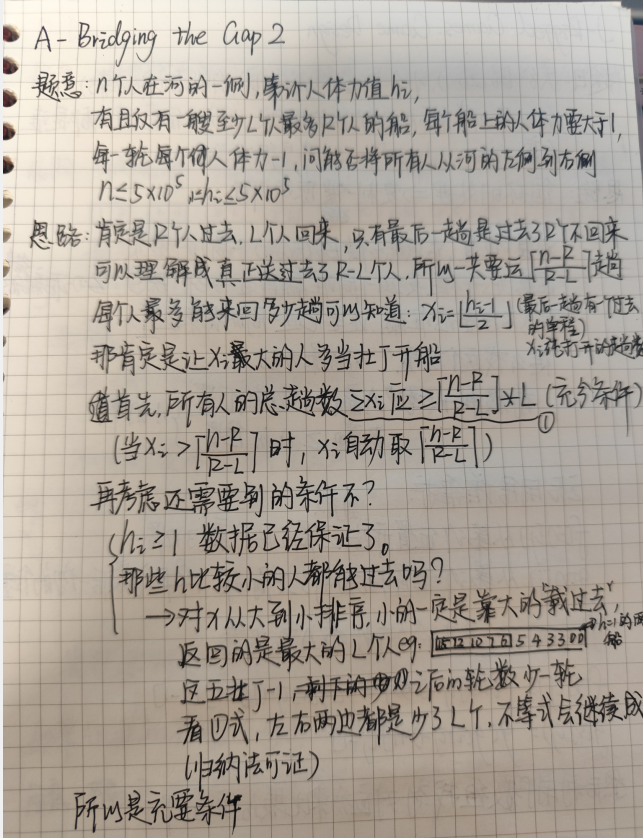 A - Bridging the Gap 2
题意: n个人在河的一侧, 第i个人体力值hi,
有且仅有一艘至少L个人最多R个人的船, 每个船上的人体力要大于1,
每一轮每个人体力-1, 问能否将所有人从河的左侧到右侧
n≤5×10⁵, 1≤hi≤5×10⁵
思路: 肯定是R个人过去, L个人回来, 只有最后一趟是过去了R个不回来
可以理解成真正送过去了R-L个人, 所以一共要运⌈(n-R)/(R-L)⌉趟
每个人最多能来回多少趟可以知道: xi=⌊(hi-1)/2⌋ (最后一趟有个过去的单程)
那肯定是让xi最大的人多当壮丁开船
首先, 所有人的总趟数 Σxi 应 ≥⌈(n-R)/(R-L)⌉*L (充分条件) ①
(当xi>⌈(n-R)/(R-L)⌉时, xi自动取⌈(n-R)/(R-L)⌉)
再考虑还需要别的条件不?
hi≥1 数据已经保证了。
那些h比较小的人都能过去吗?
→对x从大到小排序, 小的一定是靠大的"载过去",
返回的是最大的L个人eg:
这五壮丁-1, 之后的轮数少一轮
看①式, 左右两边都是少了L个, 不等式会继续成
(归纳法可证)
所以是充要条件